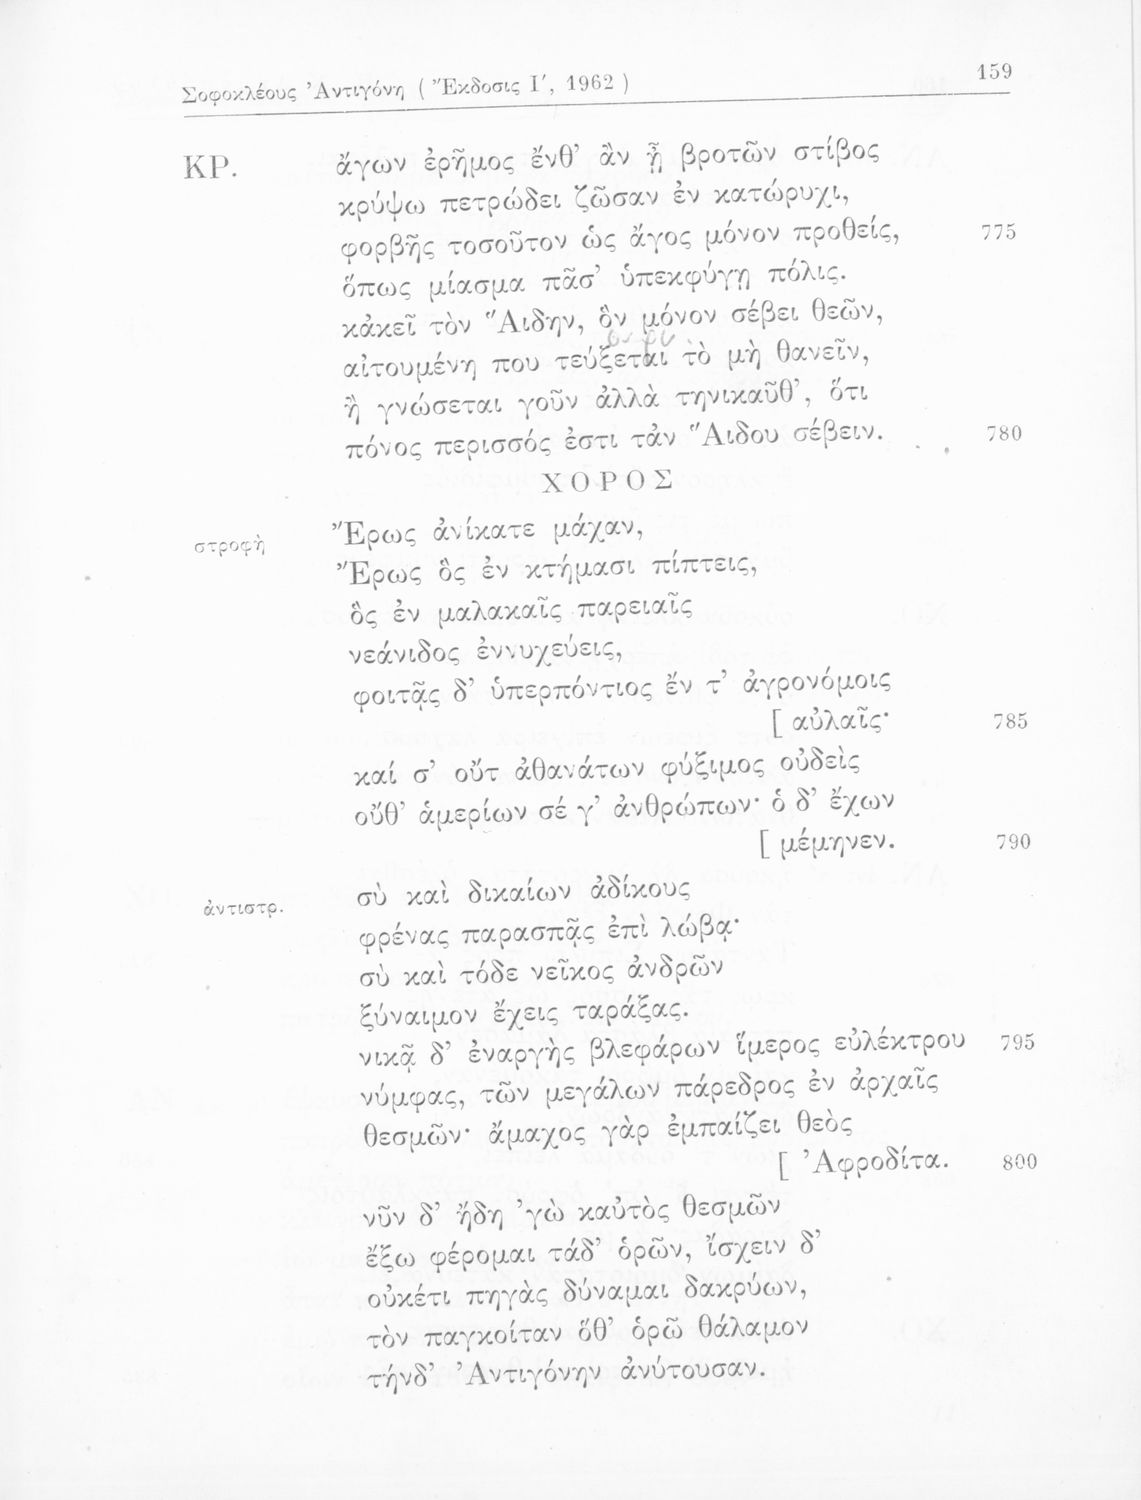 Σοφοκλέους Ἀντιγόνη ( Ἔκδοσις Ι′, 1962 ) 159
ΚΡ. ἄγων ἐρῆμος ἔνθ’ ἂν ᾖ βροτῶν στίβος
κρύψω πετρώδει ζῶσαν ἐν κατώρυχι,
φορβῆς τοσοῦτον ὡς ἄγος μόνον προθείς, 775
ὅπως μίασμα πᾶσ’ ὑπεκφύγῃ πόλις.
κἀκεῖ τὸν Ἅιδην, ὃν μόνον σέβει θεῶν,
αἰτουμένη που τεύξεται τὸ μὴ θανεῖν,
ἢ γνώσεται γοῦν ἀλλὰ τηνικαῦθ’, ὅτι
πόνος περισσός ἐστι τἀν Ἅιδου σέβειν. 780
ΧΟΡΟΣ
στροφὴ Ἔρως ἀνίκατε μάχαν,
Ἔρως ὃς ἐν κτήμασι πίπτεις,
ὃς ἐν μαλακαῖς παρειαῖς
νεάνιδος ἐννυχεύεις,
φοιτᾷς δ’ ὑπερπόντιος ἔν τ’ ἀγρονόμοις
[ αὐλαῖς· 785
καί σ’ οὔτ ἀθανάτων φύξιμος οὐδεὶς
οὔθ’ ἁμερίων σέ γ’ ἀνθρώπων· ὁ δ’ ἔχων
[ μέμηνεν. 790
ἀντιστρ. σὺ καὶ δικαίων ἀδίκους
φρένας παρασπᾷς ἐπὶ λώβᾳ·
σὺ καὶ τόδε νεῖκος ἀνδρῶν
ξύναιμον ἔχεις ταράξας.
νικᾷ δ’ ἐναργὴς βλεφάρων ἵμερος εὐλέκτρου 795
νύμφας, τῶν μεγάλων πάρεδρος ἐν ἀρχαῖς
θεσμῶν· ἄμαχος γὰρ ἐμπαίζει θεὸς
[ Ἀφροδίτα. 800
νῦν δ’ ἤδη ’γὼ καὐτὸς θεσμῶν
ἔξω φέρομαι τάδ’ ὁρῶν, ἴσχειν δ’
οὐκέτι πηγὰς δύναμαι δακρύων,
τὸν παγκοίταν ὅθ’ ὁρῶ θάλαμον
τήνδ’ Ἀντιγόνην ἀνύτουσαν.